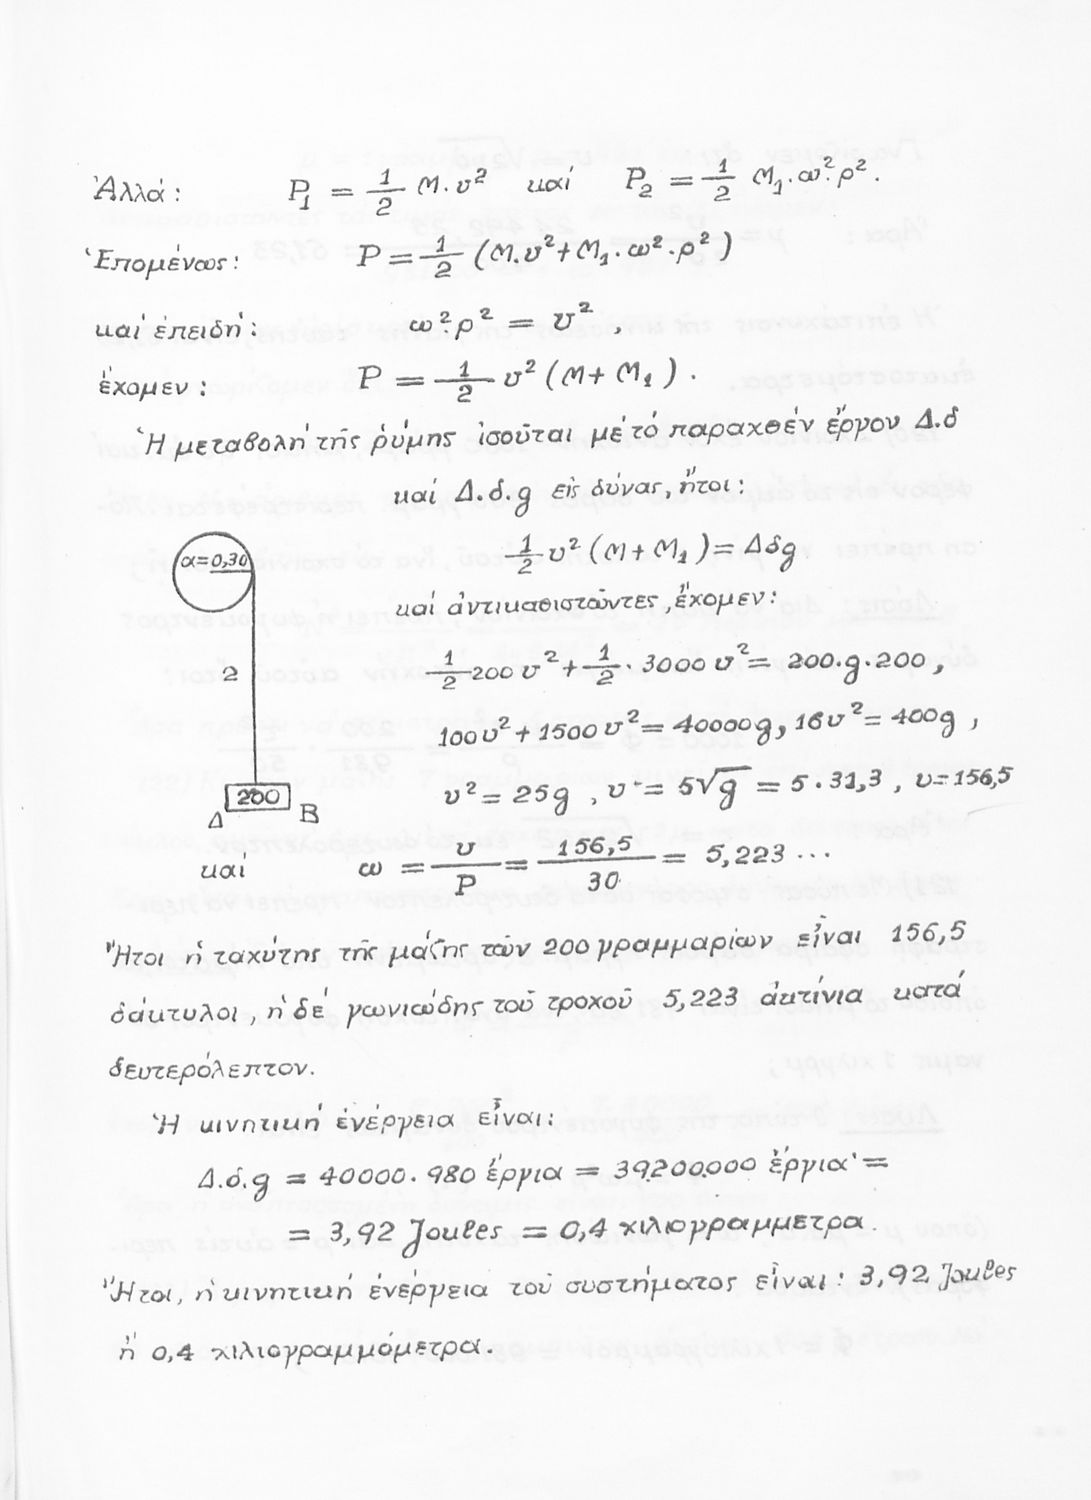 Ἀλλά: P₁ = 1/2 M·υ² καί P₂ = 1/2 M₁·ω²·ρ².
Ἑπομένως: P = 1/2 (M·υ² + M₁·ω²·ρ²)
καί ἐπειδή: ω²·ρ² = υ²,
ἔχομεν: P = 1/2 υ² (M + M₁).
Ἡ μεταβολή τῆς ῥύμης ἰσοῦται μέ τό παραχθέν ἔργον Δ.δ
καί Δ.δ.g εἰς δύνας, ἤτοι:
α=0,30
1/2 υ² (M + M₁) = Δδg
καί ἀντικαθιστῶντες, ἔχομεν:
2
1/2 200 υ² + 1/2 · 3000 υ² = 200·g·200,
100υ² + 1500υ² = 40000g, 16υ² = 400g,
200
Δ B
υ² = 25g, υ = 5√g = 5·31,3, υ=156,5
καί ω = υ/P = 156,5/30 = 5,223 ...
Ἤτοι ἡ ταχύτης τῆς μάζης τῶν 200 γραμμαρίων εἶναι 156,5
δάκτυλοι, ἡ δέ γωνιώδης τοῦ τροχοῦ 5,223 ἀκτίνια κατά
δευτερόλεπτον.
Ἡ κινητική ἐνέργεια εἶναι:
Δ.δ.g = 40000·980 ἔργια = 39.200.000 ἔργια =
= 3,92 Joules = 0,4 χιλιογραμμετρα.
Ἤτοι, ἡ κινητική ἐνέργεια τοῦ συστήματος εἶναι: 3,92 Joules
ἤ 0,4 χιλιογραμμόμετρα.